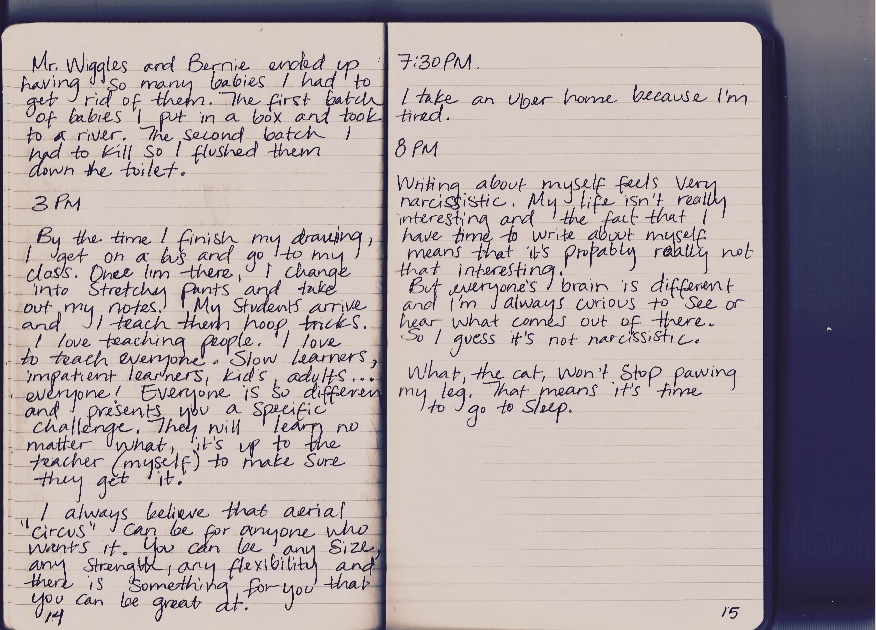 Mr. Wiggles and Bernie ended up
having so many babies I had to
get rid of them. The first batch
of babies I put in a box and took
to a river. The second batch I
had to kill so I flushed them
down the toilet.
3 PM
By the time I finish my drawing,
I get on a bus and go to my
class. Once I'm there, I change
into stretchy pants and take
out my notes. My students arrive
and I teach them hoop tricks.
I love teaching people. I love
to teach everyone. Slow learners,
impatient learners, kids, adults...
everyone! Everyone is so different
and presents you a specific
challenge. They will learn no
matter what, it's up to the
teacher (myself) to make sure
they get it.
I always believe that aerial
"circus" can be for anyone who
wants it. You can be any size,
any strength, any flexibility and
there is something for you that
you can be great at.
14
7:30PM.
I take an Uber home because I'm
tired.
8 PM
Writing about myself feels very
narcissistic. My life isn't really
interesting and the fact that I
have time to write about myself
means that it's probably really not
that interesting.
But everyone's brain is different
and I'm always curious to see or
hear what comes out of there.
So I guess it's not narcissistic.
What, the cat, won't stop pawing
my leg. That means it's time
to go to sleep.
15